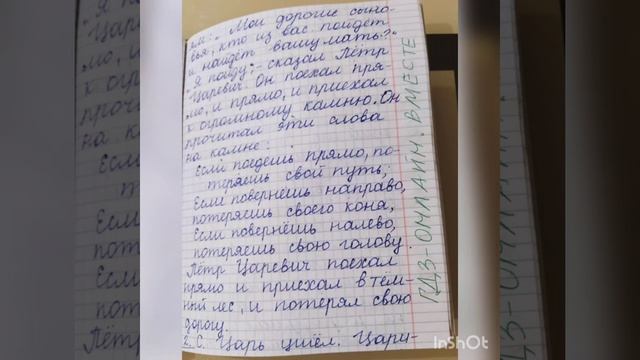 ям: „Мои дорогие сыно-
вья, кто из вас пойдёт
и найдёт вашу мать?"
„Я пойду"- сказал Пётр
Царевич. Он поехал пря-
мо, и прямо, и приехал
к огромному камню. Он
прочитал эти слова
на камне:
Если поедешь прямо, по-
теряешь свой путь,
Если повернёшь направо,
потеряешь своего коня,
Если повернёшь налево,
потеряешь свою голову.
Пётр Царевич поехал
прямо и приехал в тём-
ный лес, и потерял свою
дорогу.
2. С. Царь ушёл. Цари-
ГДЗ-ОНЛАЙН. ВМЕСТЕ
InShOt